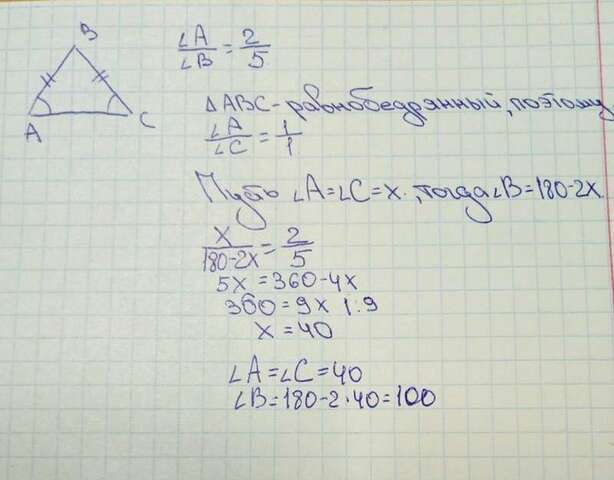 B
A
C
∠A/∠B = 2/5
ΔABC - равнобедрянный, поэтому
∠A/∠C = 1/1
Пусть ∠A=∠C=x, тогда ∠B=180-2x
x/(180-2x) = 2/5
5x = 360-4x
360=9x |:9
x=40
∠A=∠C=40
∠B=180-2·40=100